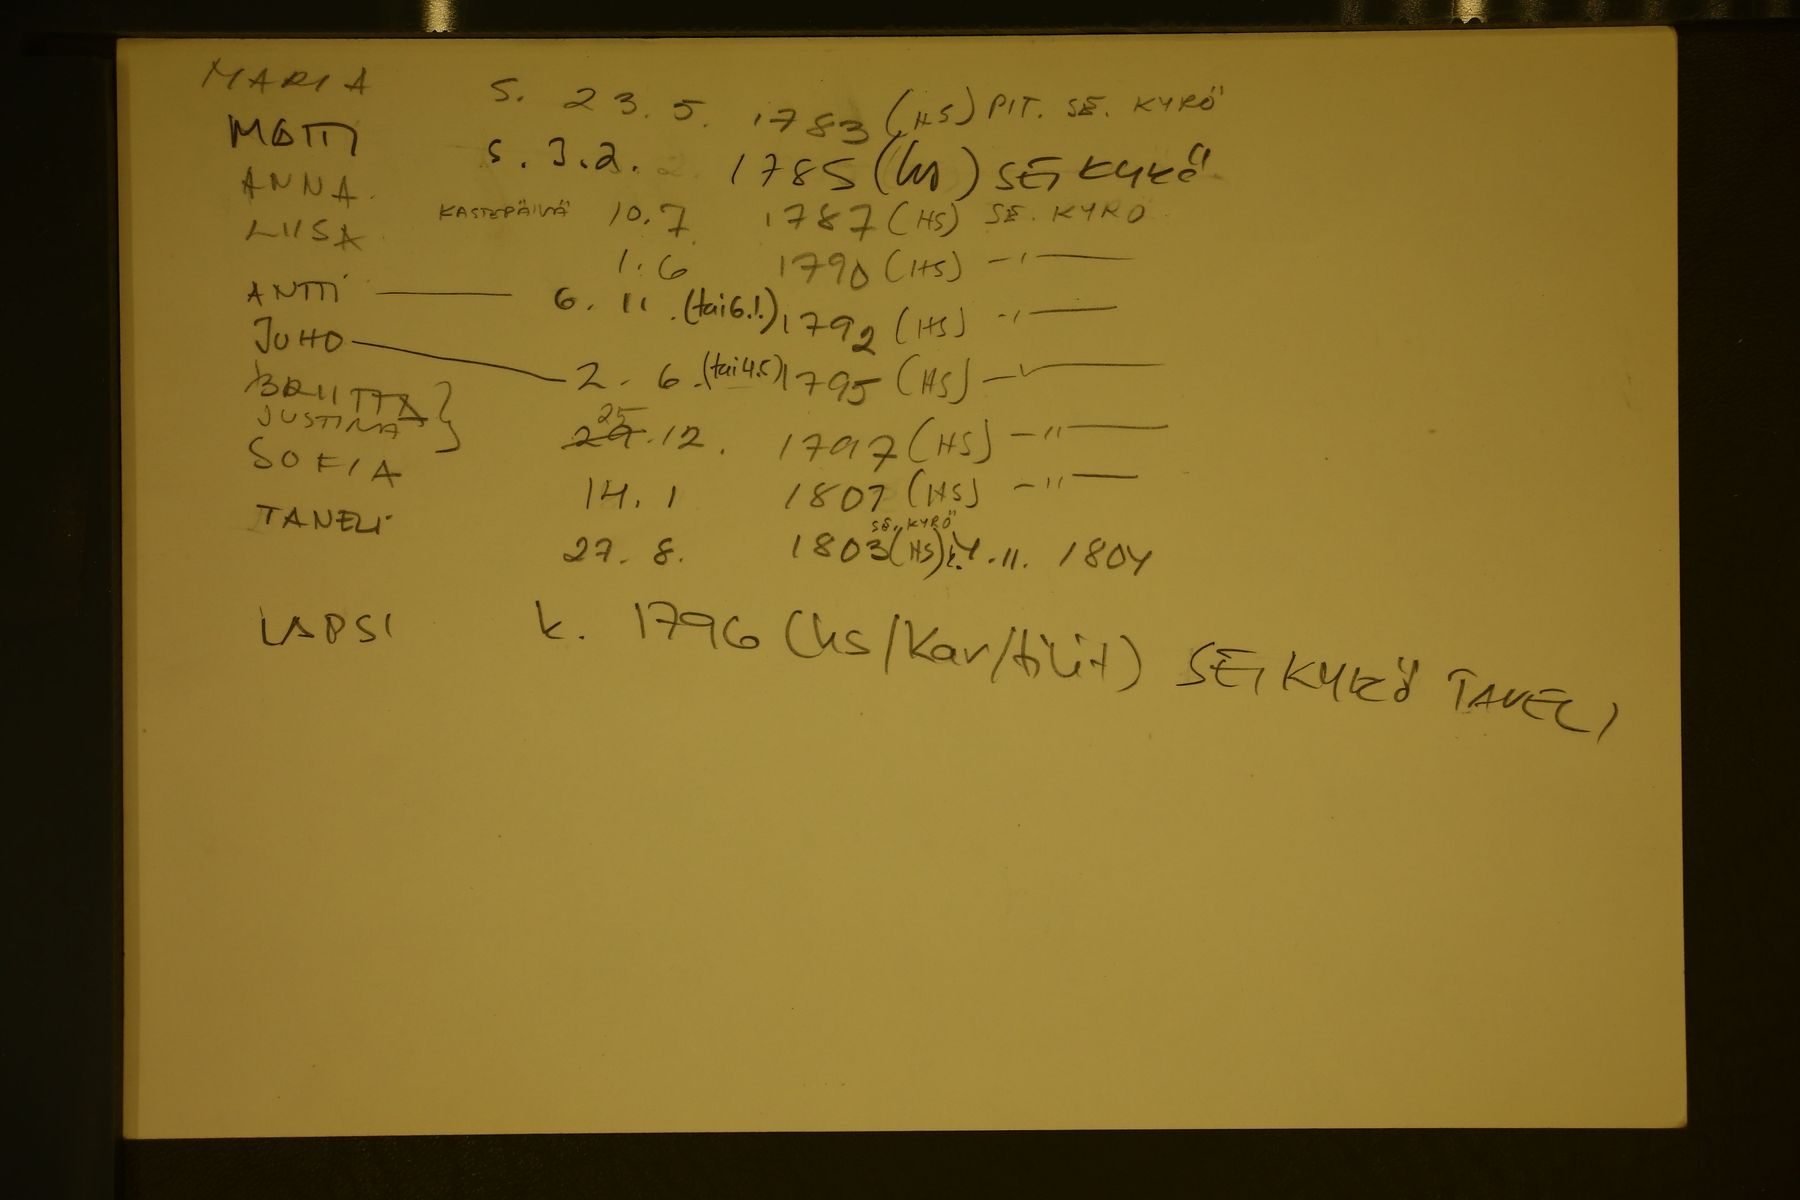 MARIA S. 23.5. 1783 (HS) PIT. SE. KYRÖ
MATTI S. 3.2. 1785 (hs) SE, KYRÖ
ANNA KASTEPÄIVÄ 10.7 1787 (HS) SE. KYRÖ
LIISA 1.6 1790 (HS) -"-
ANTTI — 6. 11. (tai 6.1.) 1792 (HS) -"-
JUHO — 2. 6. (tai 4.5) 1795 (HS) -"-
BRIITTA
JUSTINA } 25
29.12. 1797 (HS) -"-
SOFIA 14.1 1807 (HS) -"-
SE, KYRÖ
TANELI 27. 8. 1803 (HS) k. 4.11. 1804
LAPSI k. 1796 (hs/kar/tilit) SE, KYRÖ TANELI